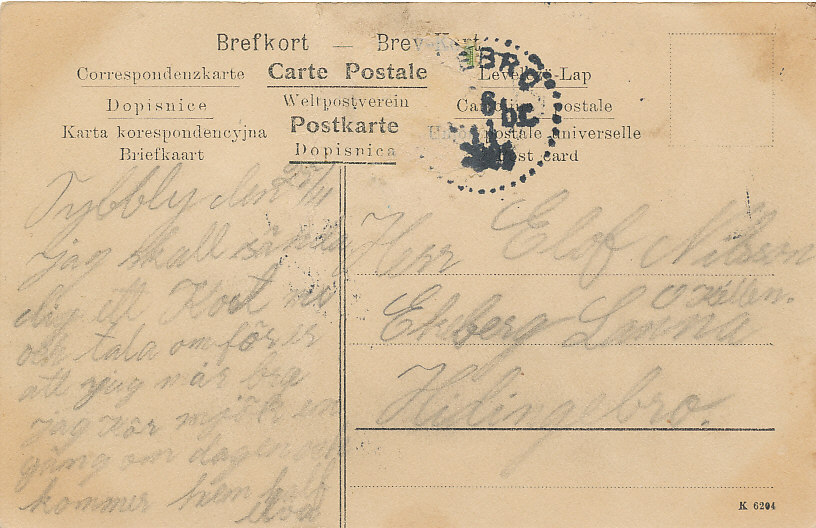 Brefkort — Brev-Kort
Correspondenzkarte Carte Postale Levelező-Lap
Dopisnice Weltpostverein Cartolina postale
Karta korespondencyjna Postkarte Union postale universelle
Briefkaart Dopisnica Post card
BRO
6
DE
den 29/11
jag skall sända
dig ett Kort nu
och tala om för er
att jag mår bra
jag kör mjölk en
gång om dagen och
kommer hem
Herr Elof Nilsson
Ekeberg
K 6204